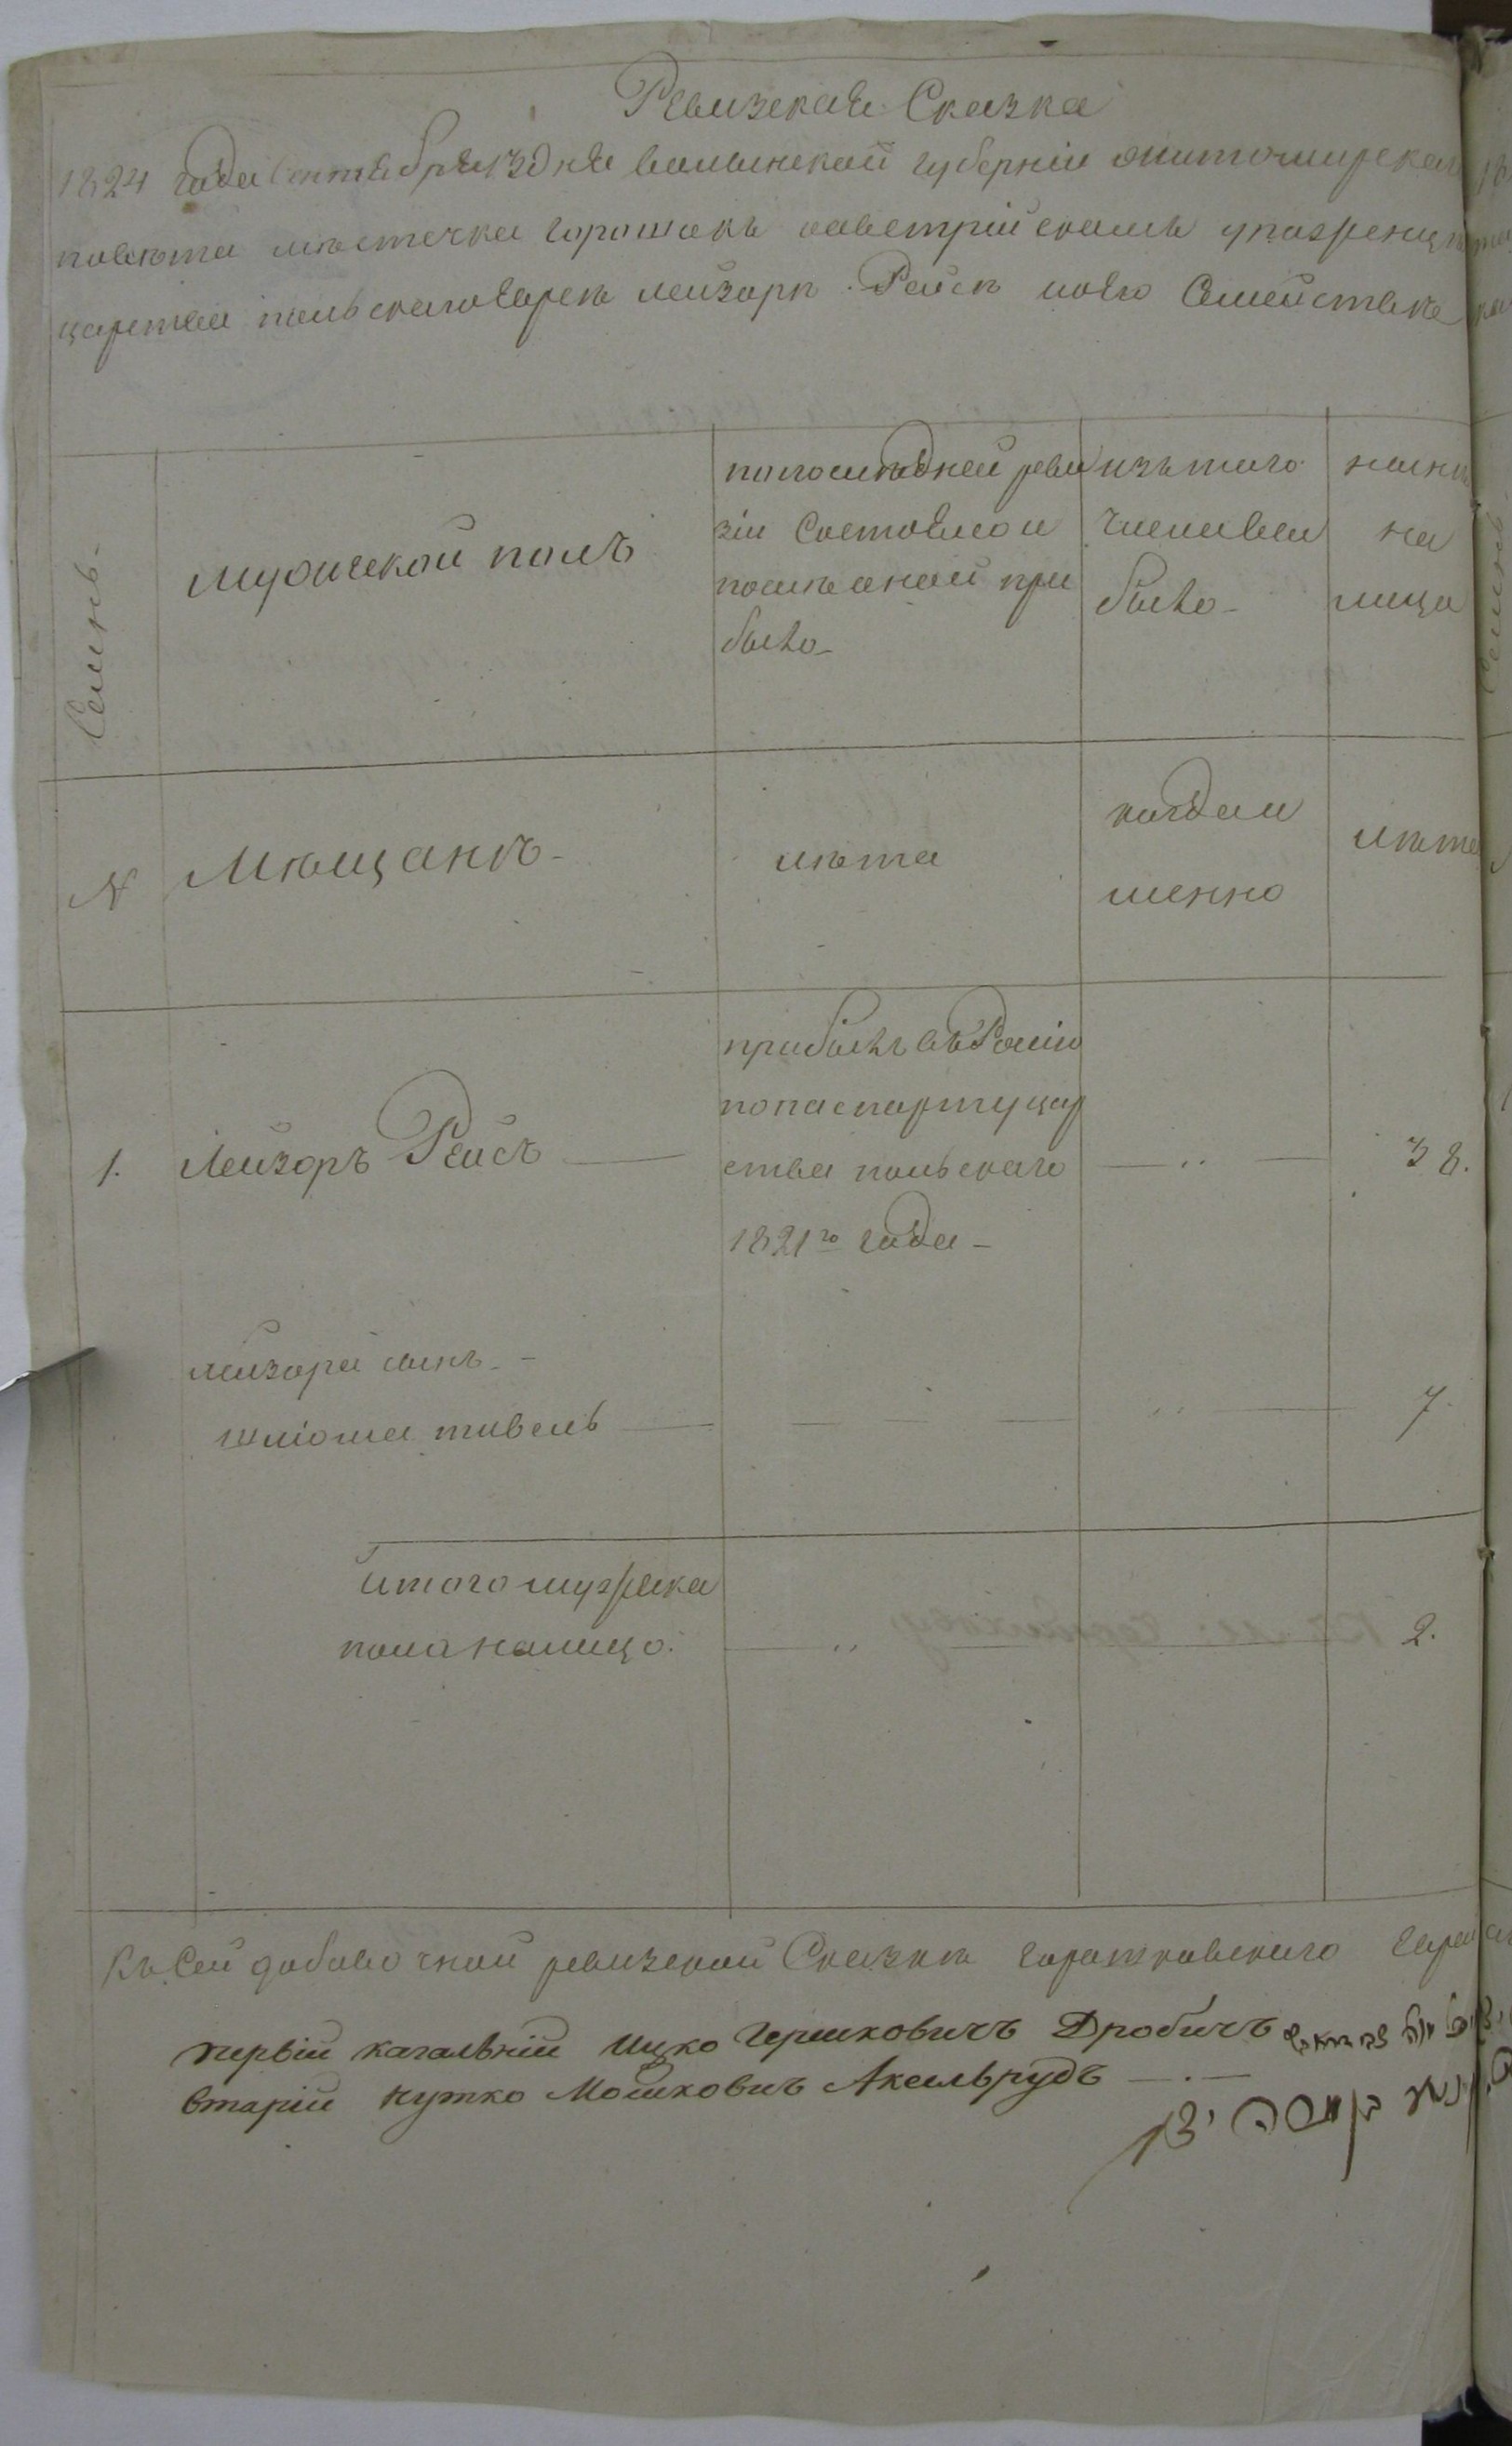 Ревизская Сказка
1824 года Сентября 3 дня волынской губерніи житомирскаго
повѣта мѣстечка горошокъ
царства польскаго еврея лейзора Рейса и его Семейства
Семьи
мужеской полъ
по последней реви
зіи Состояло и
после оной при
было
изъ того
числа вы
было
ныне
на
лицо
N
Мѣщанѣ
лѣта
когда и
менно
лѣта
1.
Лейзоръ Рейсъ
прибылъ въ Росію
по паспарту цар
ства польскаго
1821го года
38.
лейзора сынъ
шліома тивель
7.
итого мужеска
пола налицо.
2.
Къ Сей добавочной ревизской Сказкѣ горошковскаго
первій кагальній Ицко Гершковичъ Дробичъ
вторій нутко Мошковичъ Аксельрудъ